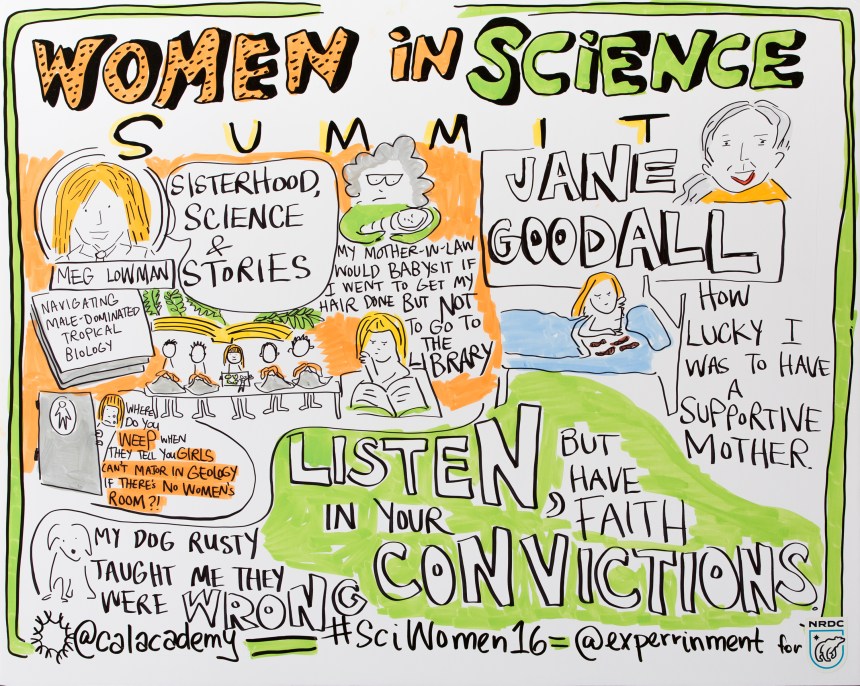 WOMEN iN SCiENCE
SUMMIT
SISTERHOOD,
SCIENCE
&
STORIES
MEG LOWMAN
NAVIGATING
MALE-DOMINATED
TROPICAL
BIOLOGY
MY MOTHER-IN-LAW
WOULD BABYSIT IF
I WENT TO GET MY
HAIR DONE BUT NOT
TO GO TO
THE
LIBRARY
WHERE
DO YOU
WEEP WHEN
THEY TELL YOU GIRLS
CAN'T MAJOR IN GEOLOGY
IF THERE'S NO WOMEN'S
ROOM?!
JANE
GOODALL
HOW
LUCKY I
WAS TO HAVE
A
SUPPORTIVE
MOTHER.
LISTEN,
BUT
HAVE
FAITH
IN YOUR
CONVICTIONS.
MY DOG RUSTY
TAUGHT ME THEY
WERE WRONG
@calacademy #SciWomen16 = @experrinment for
NRDC